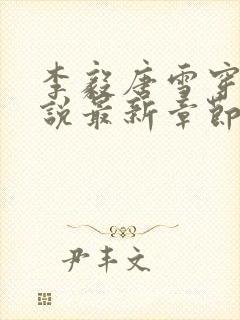 李毅唐雪穿
說最新章節
尹丰文